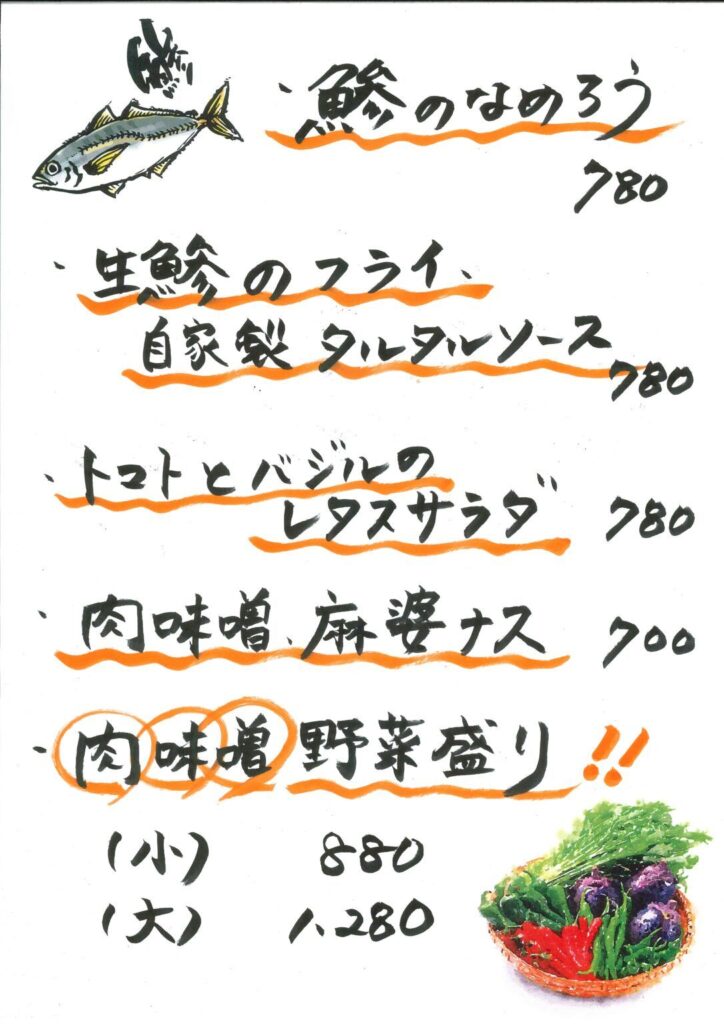 ・鯵のなめろう
780
・生鯵のフライ、
自家製タルタルソース
780
・トマトとバジルの
レタスサラダ 780
・肉味噌、麻婆ナス 700
・肉味噌野菜盛り!!
(小) 880
(大) 1,280